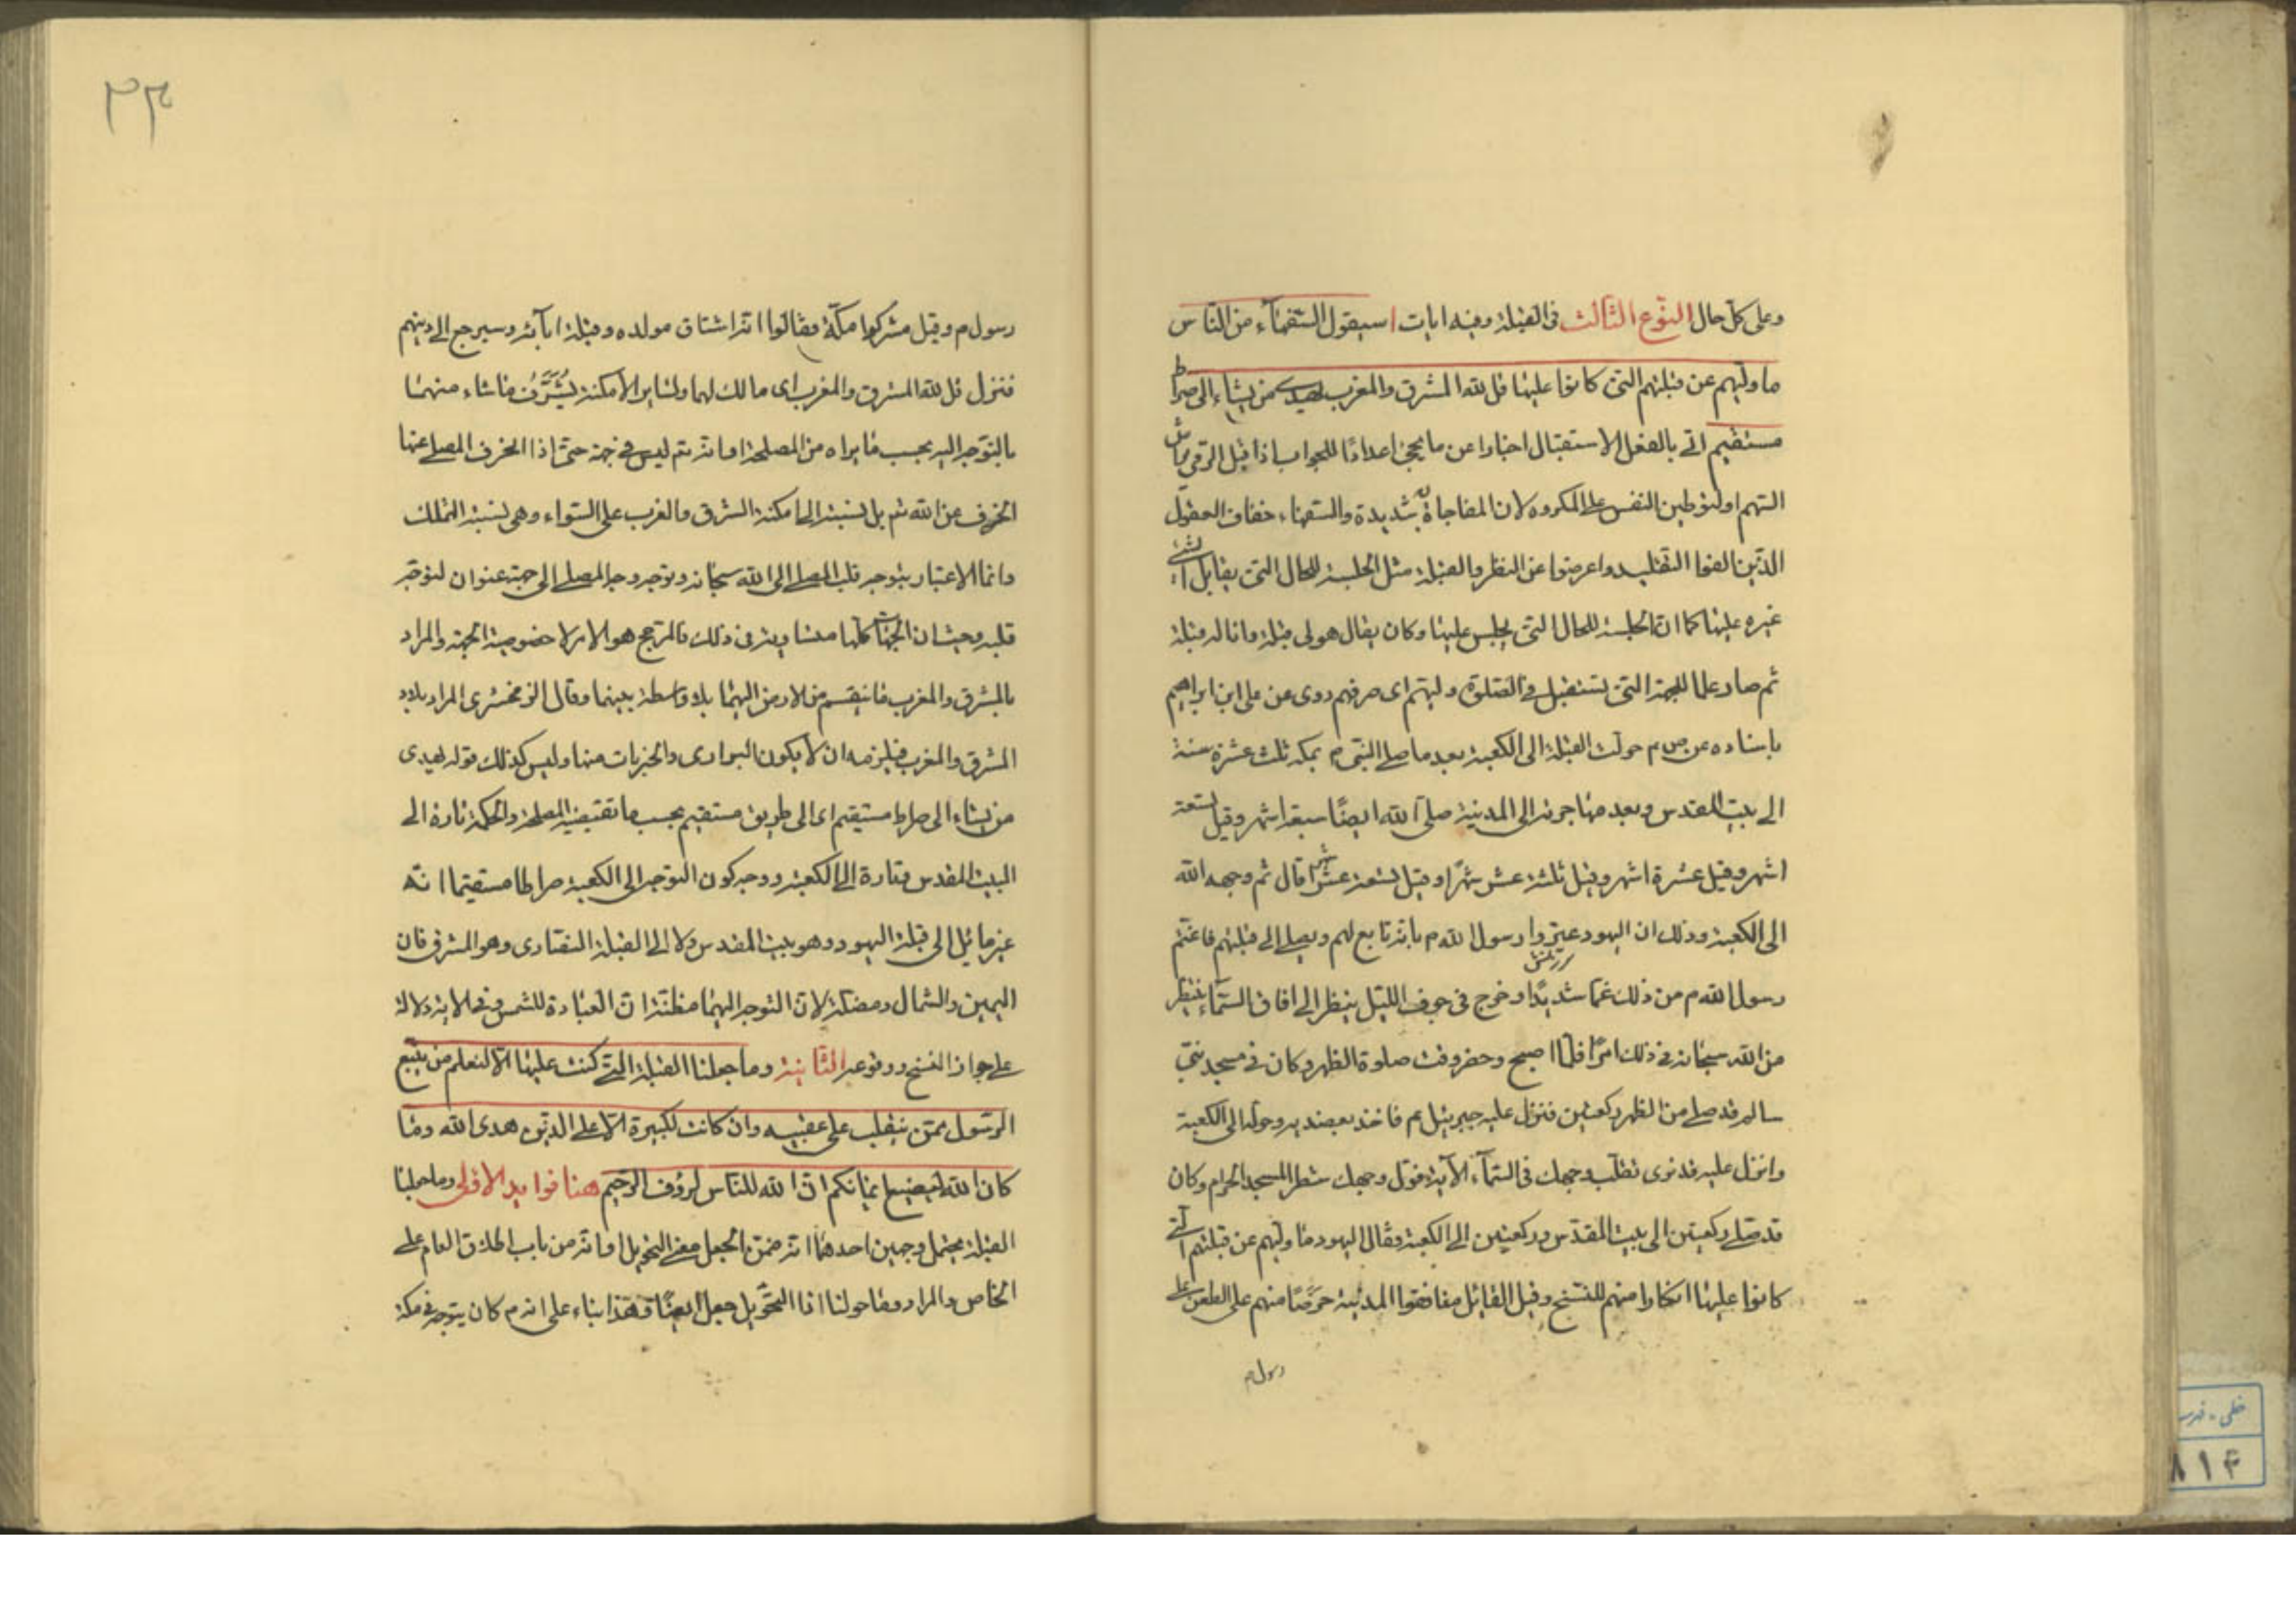 وعلى كل حال النوع الثالث فى القبلة وفيه ايات ا سيقول السفهآء من الناس
ما وليهم عن قبلتهم التى كانوا عليها قل لله المشرق والمغرب يهدى من يشاء الى صراط
مستقيم اتى بالفعل الاستقبال اخبارا عن ما يجئ اعدادًا للجواب اذا قبل الرمى يراش
السهم او لتوطين النفس على المكروه لان المفاجاة به شديدة والسفهاء خفاف العقول
الذين الفوا التقليد واعرضوا عن النظر والقبلة مثل الجلسة للحال التى يقابل الشئ
غيره عليها كما ان الجلسة للحال التى يجلس عليها وكان يقال هو لى قبلة وانا له قبلة
ثم صار علما للجهة التى تستقبل فى الصلوة وليهم اى صرفهم روى عن على ابن ابراهيم
باسناده عن ص م حولت القبلة الى الكعبة بعد ما صلى النبى م بمكه ثلث عشرة سنة
الى بيت المقدس وبعد مهاجرته الى المدينة صلى الله ايضًا سبعة اشهر وقيل تسعة
اشهر وقيل عشرة اشهر وقيل ثلثة عشر شهرًا وقيل تسعة عشر شهرا قال ثم وجهه الله
الى الكعبة وذلك ان اليهود عيروا رسول الله م بانه تابع لهم ويصلى الى قبلتهم فاغتم
رسول الله م من ذلك غما شديدًا وخرج فى جوف الليل ينظر الى افاق السمآء ينتظر
من الله سبحانه فى ذلك امرًا فلما اصبح وحضر وقت صلوة الظهر وكان فى مسجد بنى
سالم قد صلى من الظهر ركعتين فنزل عليه جبرئيل م فاخذ بعضديه وحوله الى الكعبة
وانزل عليه قد نرى تقلب وجهك فى السمآء الآية فول وجهك شطر المسجد الحرام وكان
قد صلى ركعتين الى بيت المقدس وركعتين الى الكعبة وقال اليهود ما وليهم عن قبلتهم التى
كانوا عليها انكارا منهم للنسخ وقيل القائل منافقوا المدينة حرصًا منهم على الطعن على
رسول م
٣٣
رسول م وقيل مشركوا مكة وقالوا انه اشتاق مولده وقبلة ابآئه وسيرجع الى دينهم
فنزل قل لله المشرق والمغرب اى مالك لهما ولساير الامكنة يشرف ما شاء منهما
بالتوجه اليه بحسب ما يراه من المصلحة او انه تم ليس فى جهة حتى اذا انحرف المصلى عنها
انحرف عن الله تم بل نسبته الى امكنة الشرق والغرب على السواء وهى نسبة التملك
وانما الاعتبار بتوجه قلب المصلى الى الله سبحانه وتوجه وجه المصلى الى جهة عنوان لتوجه
قلبه وحيث ان الجهات كلها متساوية فى ذلك فالمرجع هو الامر لا خصوصية الجهة والمراد
بالمشرق والمغرب ما ينقسم من الارض اليهما بلا واسطة بينهما وقال الزمخشرى المراد بلاد
المشرق والمغرب فيلزمه ان لا يكون البوارى والخربات منها وليس كذلك قوله يهدى
من يشاء الى صراط مستقيم اى الى طريق مستقيم بحسب ما تقتضيه المصلحة والحكمة تارة الى
البيت المقدس وتارة الى الكعبة ووجه كون التوجه الى الكعبة صراطا مستقيما انه
غير مايل الى قبلة اليهود وهو بيت المقدس ولا الى القبلة النصارى وهو المشرق فان
اليمين والشمال ومضلة لان التوجه اليهما مظنة ان العبادة للشمس وفى الاية دلالة
على جواز النسخ ووقوعه الثانية وما جعلنا القبلة التى كنت عليها الا لنعلم من يتبع
الرسول ممن ينقلب على عقبيه وان كانت لكبيرة الا على الذين هدى الله وما
كان الله ليضيع ايمانكم ان الله للناس لرؤف الرحيم هنا فوايد الاولى وما جعلنا
القبلة يحتمل وجهين احدهما انه ضمن الجعل معنى التحويل او انه من باب اطلاق العام على
الخاص والمراد وما حولنا اذا التحويل جعل ايضًا وهذا بناء على انه م كان يتوجه فى مكة